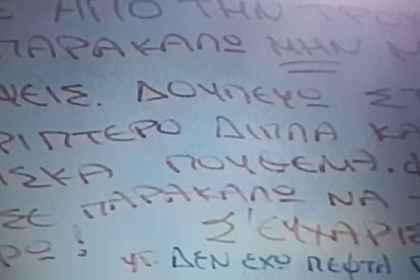 ΑΠΟ ΤΗΝ ΤΡΟ
ΠΑΡΑΚΑΛΩ ΜΗΝ Μ
ΨΕΙΣ. ΔΟΥΛΕΥΩ ΣΤ
ΡΙΠΤΕΡΟ ΔΙΠΛΑ ΚΑ
ΙΣΚΑ ΠΟΥΘΕΝΑ.
ΣΕ ΠΑΡΑΚΑΛΩ ΝΑ
ΡΩ! Σ' ΕΥΧΑΡΙΣ
ΥΓ. ΔΕΝ ΕΧΩ ΛΕΦΤΑ